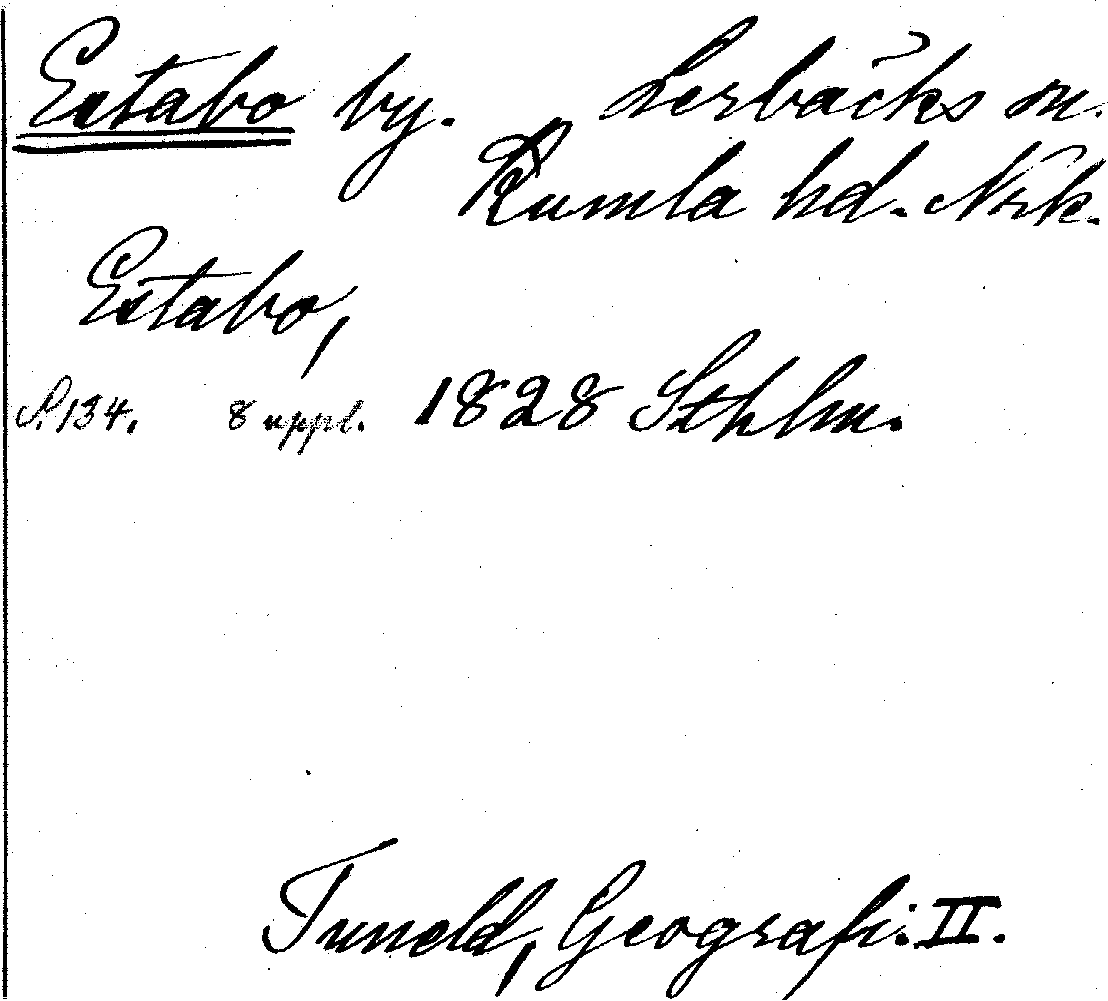 Estabo by. Lerbäcks sn.
Kumla hd. Nrk.
Estabo,
S. 134. 8 uppl. 1828 Sthlm.
Tuneld, Geografi. II.